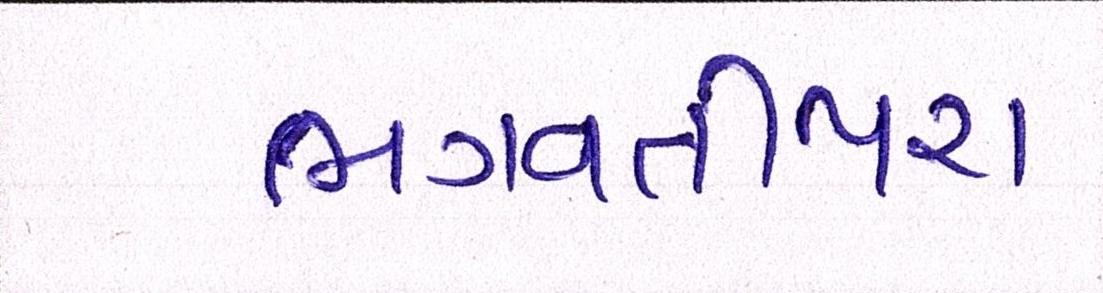 ભગવતીપરા